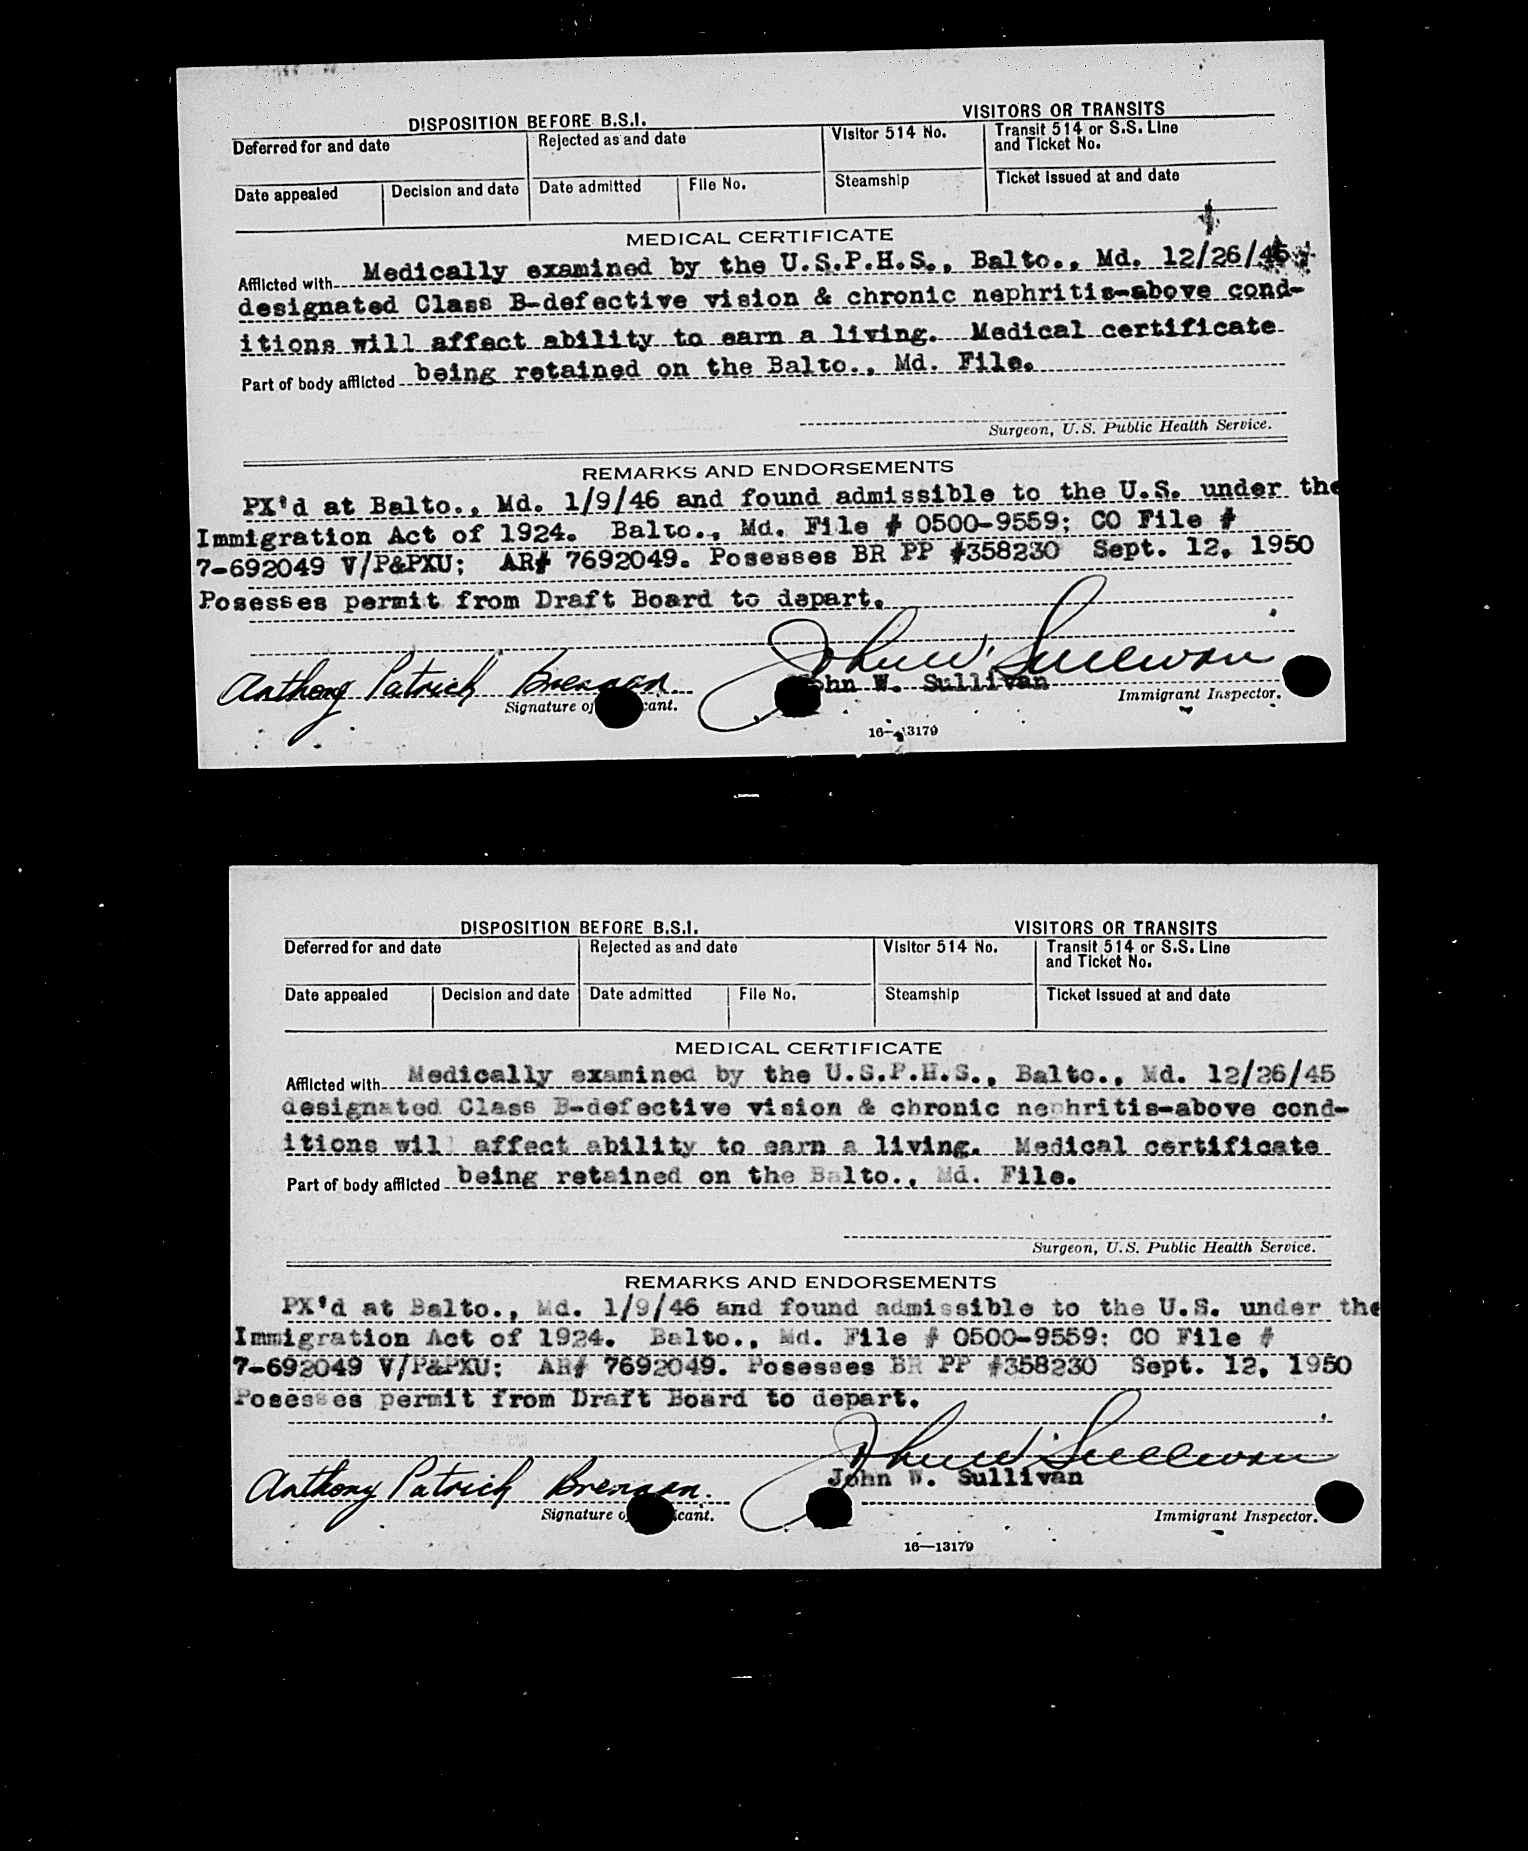 DISPOSITION BEFORE B.S.I. VISITORS OR TRANSITS
Deferred for and date Rejected as and date Visitor 514 No. Transit 514 or S.S. Line and Ticket No.
Date appealed Decision and date Date admitted File No. Steamship Ticket issued at and date
MEDICAL CERTIFICATE
Afflicted with Medically examined by the U.S.P.H.S., Balto., Md. 12/26/45
designated Class B-defective vision & chronic nephritis-above cond-
itions will affect ability to earn a living. Medical certificate
Part of body afflicted being retained on the Balto., Md. File.
Surgeon, U.S. Public Health Service.
REMARKS AND ENDORSEMENTS
PX'd at Balto., Md. 1/9/46 and found admissible to the U.S. under the
Immigration Act of 1924. Balto., Md. File # 0500-9559; CO File #
7-692049 V/P&PXU; AR# 7692049. Posesses BR PP #358230 Sept. 12, 1950
Posesses permit from Draft Board to depart.
Anthony Patrick Brennan John W. Sullivan
John W. Sullivan
Signature of Immigrant Inspector.
16—13179
DISPOSITION BEFORE B.S.I. VISITORS OR TRANSITS
Deferred for and date Rejected as and date Visitor 514 No. Transit 514 or S.S. Line and Ticket No.
Date appealed Decision and date Date admitted File No. Steamship Ticket issued at and date
MEDICAL CERTIFICATE
Afflicted with Medically examined by the U.S.P.H.S., Balto., Md. 12/26/45
designated Class B-defective vision & chronic nephritis-above cond-
itions will affect ability to earn a living. Medical certificate
Part of body afflicted being retained on the Balto., Md. File.
Surgeon, U.S. Public Health Service.
REMARKS AND ENDORSEMENTS
PX'd at Balto., Md. 1/9/46 and found admissible to the U.S. under the
Immigration Act of 1924. Balto., Md. File # 0500-9559: CO File #
7-692049 V/P&PXU; AR# 7692049. Posesses BR PP #358230 Sept. 12, 1950
Posesses permit from Draft Board to depart.
Anthony Patrick Brennan. John W. Sullivan
John W. Sullivan
Signature Immigrant Inspector.
16—13179